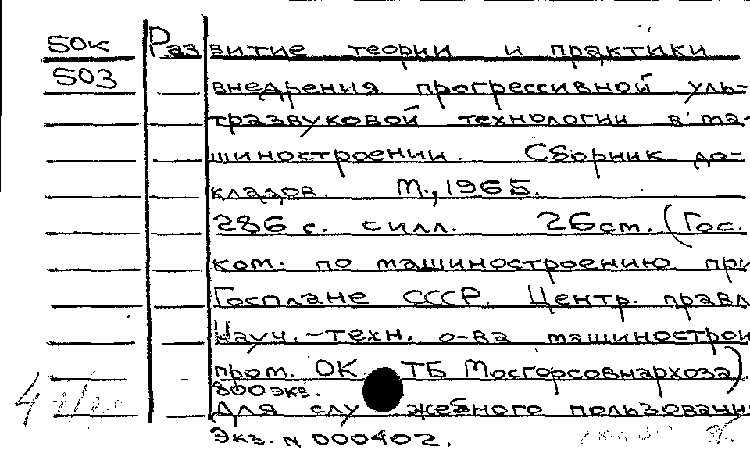 50к Развитие теории и практики
503 внедрения прогрессивной уль-
тразвуковой технологии в ма-
шиностроении. Сборник до-
кладов. М., 1965.
286 с. с илл. 26 см. (Гос.
ком. по машиностроению при
Госплане СССР. Центр. правл
Науч.-техн. о-ва машинострои
пром. ОК ТБ Мосгорсовнархоза).
800 экз.
Для служебного пользовани
Экз. N 000402.